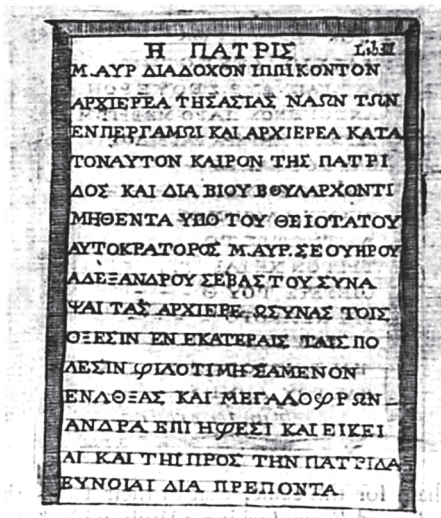 Η ΠΑΤΡΙΣ Lib III
Μ.ΑΥΡ ΔΙΑΔΟΧΟΝ ΙΠΠΙΚΟΝΤΟΝ
ΑΡΧΙΕΡΕΑ ΤΗΣΑΣΙΑΣ ΝΑΩΝ ΤΩΝ
ΕΝΠΕΡΓΑΜΩΙ ΚΑΙ ΑΡΧΙΕΡΕΑ ΚΑΤΑ
ΤΟΝΑΥΤΟΝ ΚΑΙΡΟΝ ΤΗΣ ΠΑΤΡΙ
ΔΟΣ ΚΑΙ ΔΙΑ ΒΙΟΥ ΒΟΥΛΑΡΧΟΝΤΙ
ΜΗΘΕΝΤΑ ΥΠΟ ΤΟΥ ΘΕΙΟΤΑΤΟΥ
ΑΥΤΟΚΡΑΤΟΡΟΣ Μ.ΑΥΡ.ΣΕΟΥΗΡΟΥ
ΑΔΕΞΑΝΔΡΟΥ ΣΕΒΑΣΤΟΥ ΣΥΝΑ
ΨΑΙ ΤΑΣ ΑΡΧΙΕΡΕΩΣΥΝΑΣ ΤΟΙΣ
ΟΞΕΣΙΝ ΕΝ ΕΚΑΤΕΡΑΙΣ ΤΑΙΣ ΠΟ
ΛΕΣΙΝ ΦΙΛΟΤΙΜΗΣΑΜΕΝΟΝ
ΕΝΛΘΞΑΣ ΚΑΙ ΜΕΓΑΔΟΦΡΩΝ
ΑΝΔΡΑ ΕΠΙ ΗΦΕΣΙ ΚΑΙ ΕΙΚΕΙ
ΑΙ ΚΑΙ ΤΗΙ ΠΡΟΣ ΤΗΝ ΠΑΤΡΙΔΑ
ΕΥΝΟΙΑΙ ΔΙΑ ΠΡΕΠΟΝΤΑ